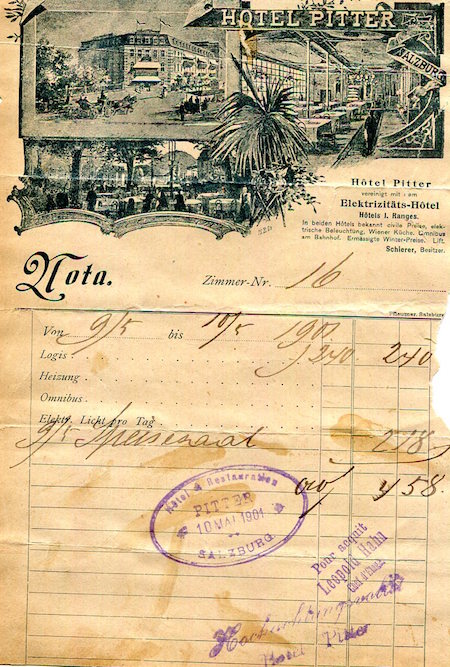 HÔTEL PITTER
SALZBURG
Hôtel Pitter
vereinigt mit dem
Elektrizitäts-Hôtel
Hôtels I. Ranges.
In beiden Hôtels bekannt civile Preise, elek-
trische Beleuchtung, Wiener Küche. Omnibus
am Bahnhof. Ermässigte Winter-Preise. Lift.
Schierer, Besitzer.
Nota.
Zimmer-Nr. 16
Von 9/5 bis 10/5 190
Logis 240 240
Heizung
Omnibus
Elektr. Licht pro Tag
9/5 Speisesaal 218
458
Hôtel & Restauration
PITTER
10 MAI 1901
SALZBURG
Pour acquit
Leopold Hahn
Hochachtungsvoll
Hotel Pitter